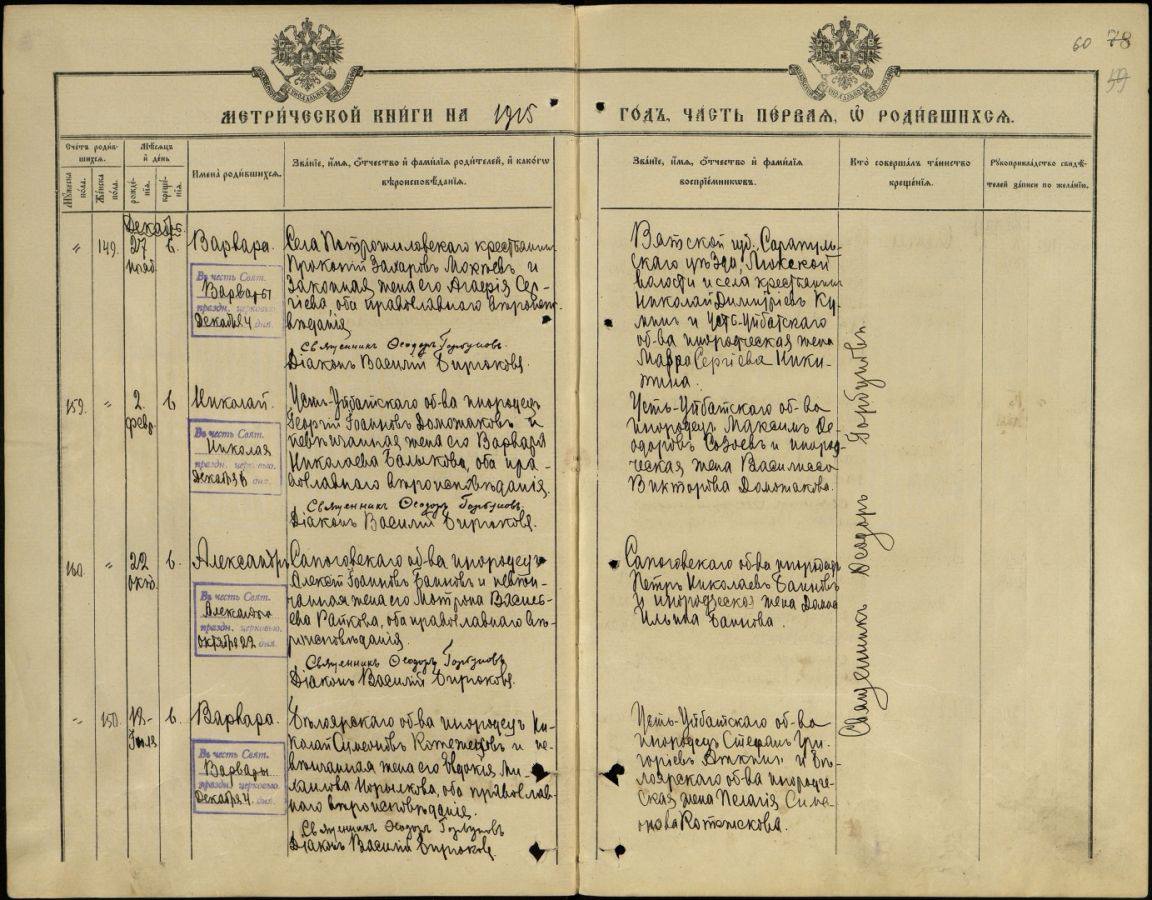 60 78
59
МЕТРИ́ЧЕСКОЙ КНИ́ГИ НА 1915 ГОДЪ, ЧА́СТЬ ПЕ́РВАЯ, Ѡ РОДИ́ВШИХСЯ.
Сче́тъ роди́в-
шихся.
Му́жеска по́ла.
Же́нска по́ла.
Мѣ́сяцъ
и҆ де́нь
рожде́-
нія.
креще́-
нія.
И҆мена̀ роди́вшихся.
Зва́ніе, и҆́мя, ѻ҆́тчество и҆ фами́лія роди́телей, и҆ како́гѡ
вѣроисповѣ́данія.
Зва́ніе, и҆́мя, ѻ҆́тчество и҆ фами́лія
воспрїе́мникѡвъ.
Кто̀ соверша́лъ та́инство
креще́нія.
Рукоприкла́дство свидѣ́-
телей за́писи по жела́нію.
Декабрь.
„ 149. 27 6. Варвара.
нояб.
Въ честь Свят.
Варвары
праздн. церковью
Декабря 4 дня.
Села крестьянинъ
Прокопій Захаровъ и
законная жена его Агаѳія Сер-
гіева, оба православнаго вѣроиспо-
вѣданія
Священникъ Ѳеодоръ Горбуновъ
Діаконъ Василій Бирюковъ.
Вятской губ. Сарапуль-
скаго уѣзда,
волости и села крестьянинъ
Николай Димитріевъ Ку-
и Усть-Уйбатскаго
об-ва инородческая жена
Мавра Сергіева Ники-
тина.
159. „ 2. 6 Николай.
февр.
Въ честь Свят.
Николая
праздн. церковью.
Декабря 6 дня.
Усть-Уйбатскаго об-ва инородецъ
Георгій Іоанновъ Доможаковъ и
невѣнчанная жена его Варвара
Николаева оба пра-
вославнаго вѣроисповѣданія.
Священникъ Ѳеодоръ Горбуновъ
Діаконъ Василій Бирюковъ.
Усть-Уйбатскаго об-ва
инородецъ Максимъ Ѳе-
одоровъ и инород-
ческая жена Василисса
Викторова Доможакова.
160. „ 22 6. Александръ
окт.
Въ честь Свят.
Александра
праздн. церковью.
октября 22 дня.
Сапоговскаго об-ва инородецъ
Алексѣй Іоанновъ Баиновъ и невѣн-
чанная жена его Матрона Василь-
ева оба православнаго вѣ-
роисповѣданія.
Священникъ Ѳеодоръ Горбуновъ
Діаконъ Василій Бирюковъ.
Сапоговскаго об-ва инородецъ
Петръ Николаевъ Баиновъ
и инородческая жена
Ильина Баинова.
„ 150. 18- 6. Варвара.
Въ честь Свят.
Варвары
праздн. церковью
Декабря 4. дня.
Бѣлоярскаго об-ва инородецъ Ни-
колай Симеоновъ и не-
вѣнчанная жена его Евдокія Ми-
хаилова оба православ-
наго вѣроисповѣданія.
Священникъ Ѳеодоръ Горбуновъ
Діаконъ Василій Бирюковъ
Усть-Уйбатскаго об-ва
инородецъ Стефанъ Гри-
горіевъ и Бѣ-
лоярскаго об-ва инородче-
ская жена Пелагія Симе-
онова
Священникъ Ѳеодоръ Горбуновъ